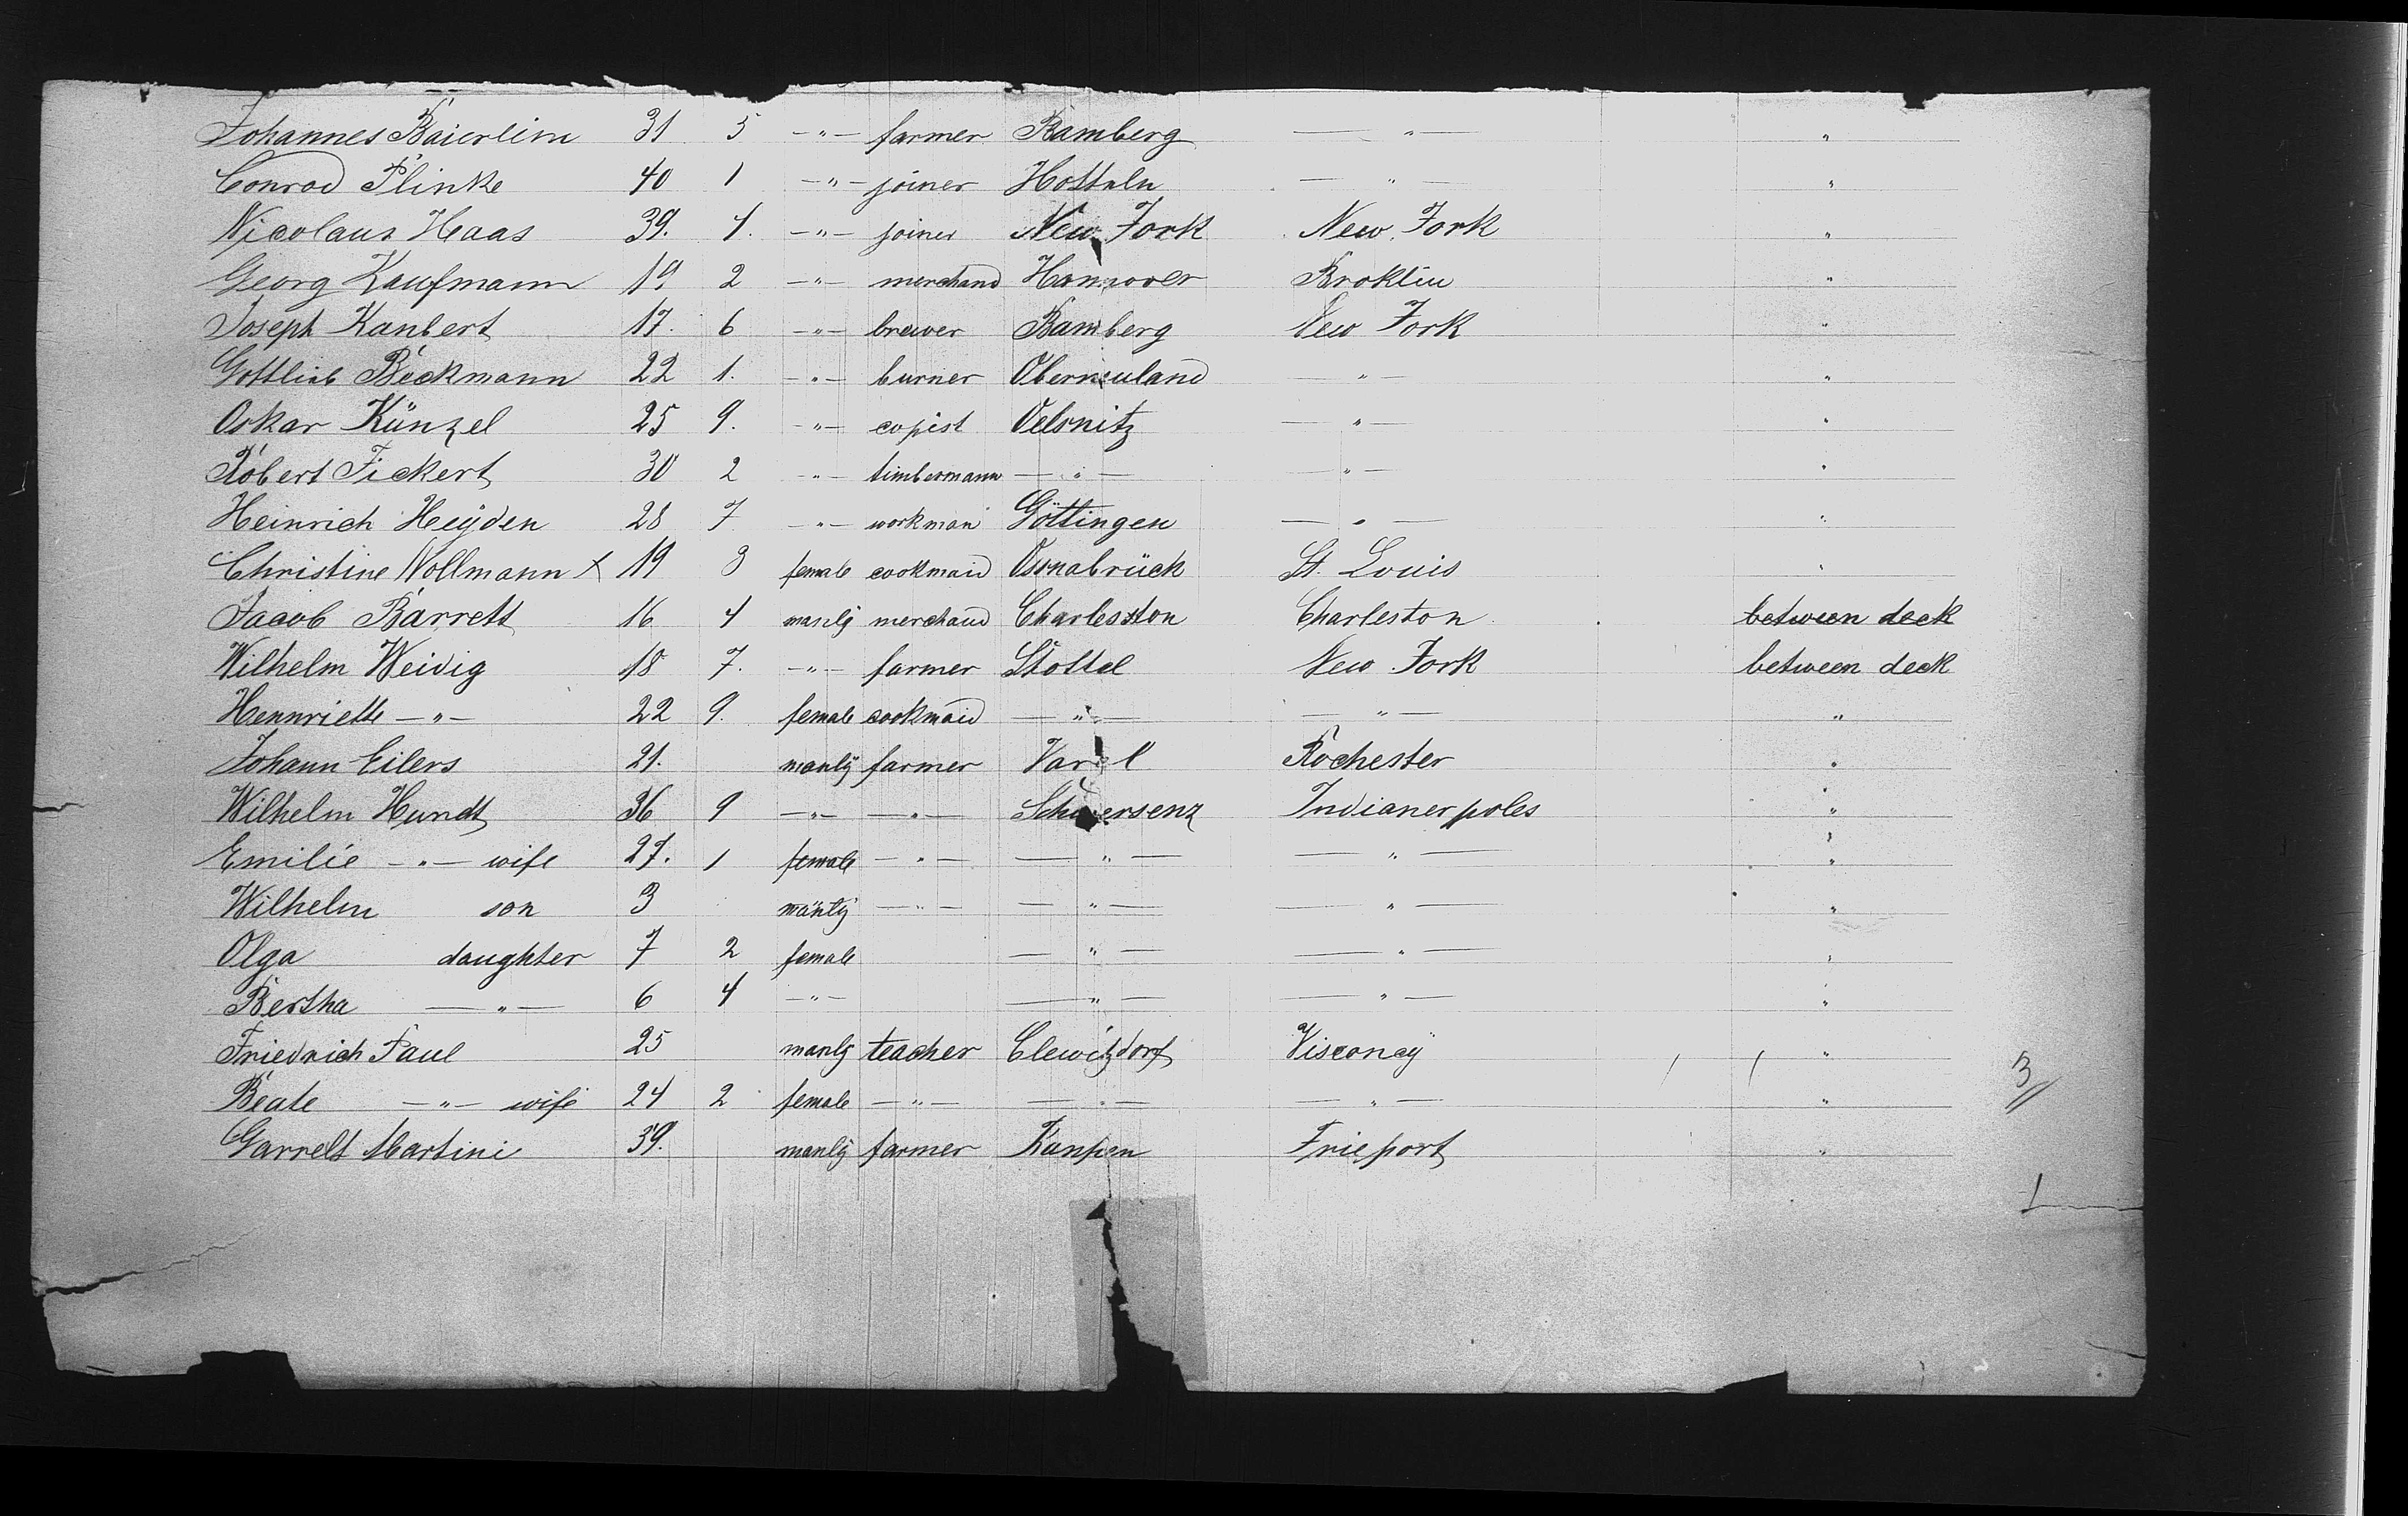 Johannes Baierlein 31 5 -"- farmer Bamberg -"- "
Conrad Plinke 40 1 -"- joiner Hotteln -"- "
Nicolaus Haas 39. 4. -"- joiner New York New York "
Georg Kaufmann 19 2 -"- merchand Hannover Broklin "
Joseph Kanbert 17. 6 -"- brewer Bamberg New York "
Gottlieb Beckmann 22 1. -"- burner Oberneuland -"- "
Oskar Künzel 25 9. -"- copist Oelsnitz -"- "
Robert Fickert 30 2 -"- timbermann -"- -"- "
Heinrich Heyden 28 7 -"- workman Göttingen -"- "
Christine Nollmann x 19 3 female cookmaid Osnabrück St. Louis "
Jacob Barrett 16 4 manly merchand Charleston Charleston between deck
Wilhelm Weidig 18 7. -"- farmer Stottel New York between deck
Hennriette -"- 22 9. female cookmaid -"- -"- "
Johann Eilers 21. manly farmer Varel Rochester "
Wilhelm Hundt 36 9 -"- -"- Schwersenz Indianerpoles "
Emilie -"- wife 27. 1 female -"- -"- -"- "
Wilhelm son 3 manly -"- -"- -"- "
Olga daughter 7 2 female -"- -"- "
Bertha -"- 6 4 -"- -"- -"- "
Friedrich Paul 25 manly teacher Clewitzdorf Visconcy "
Beate -"- wife 24 2 female -"- -"- -"- "
3
Garrelt Martini 39. manly farmer Frieport "
1